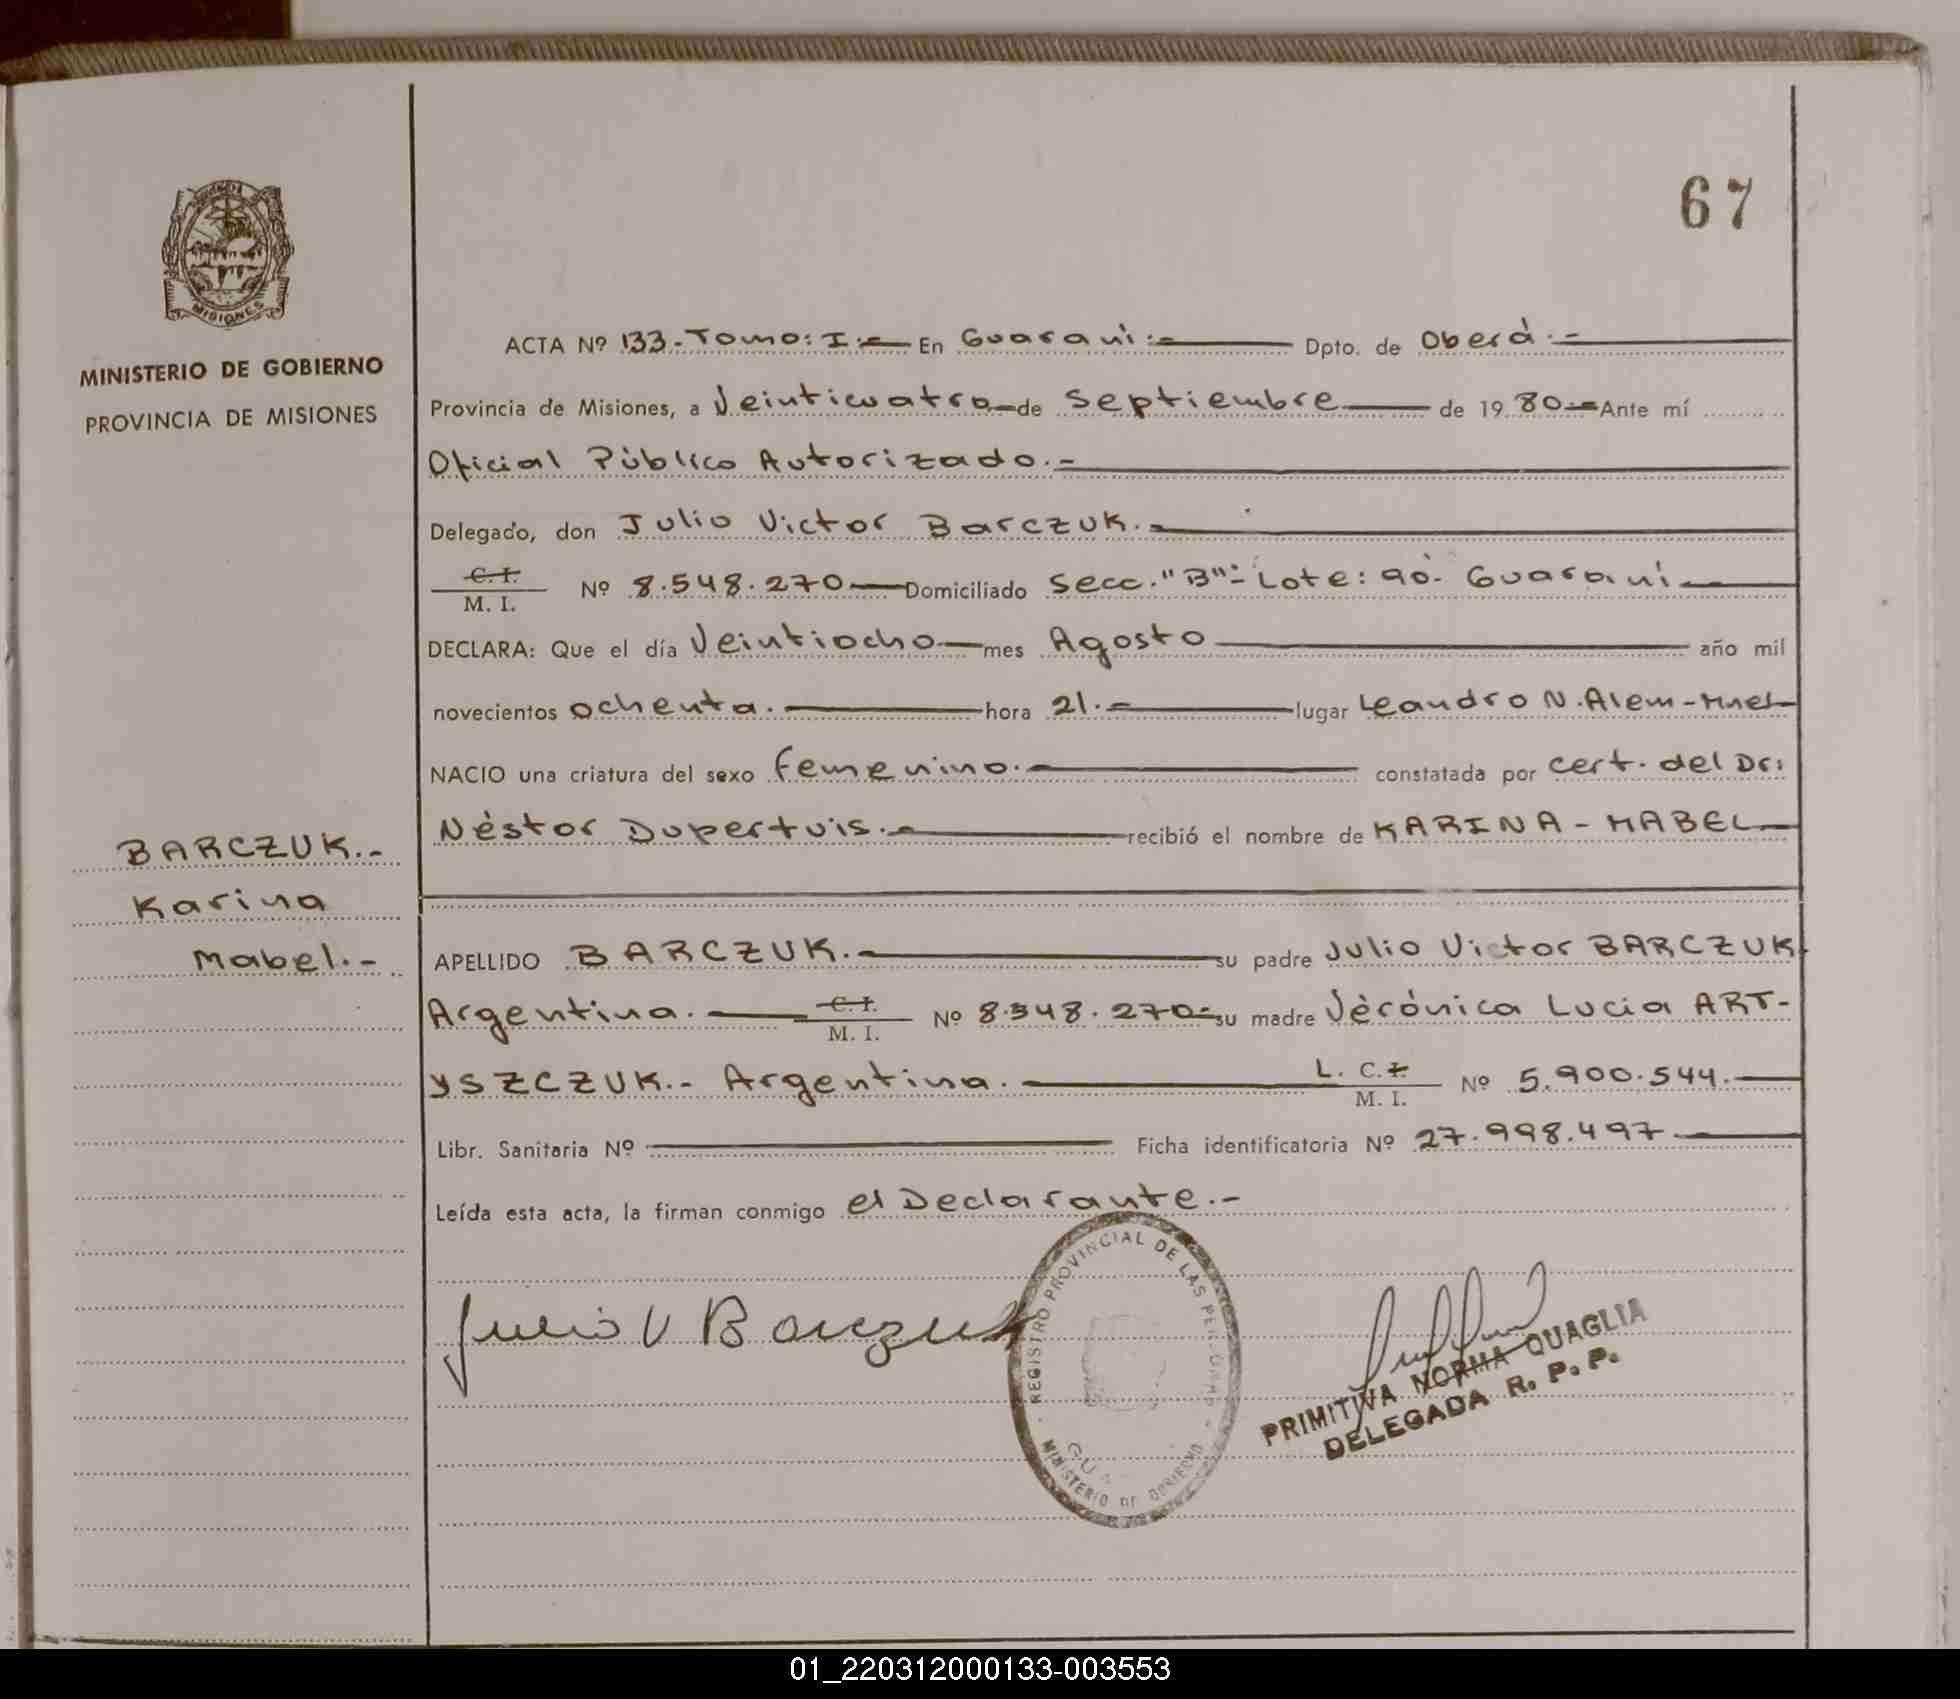 67
MISIONES
MINISTERIO DE GOBIERNO
PROVINCIA DE MISIONES
BARCZUK.-
Karina
Mabel.-
ACTA Nº 133.-Tomo: I.- En Guaraní.- Dpto. de Oberá.-
Provincia de Misiones, a Veinticuatro de Septiembre de 19 80.- Ante mí
Oficial Público Autorizado.-
Delegado, don Julio Victor BARCZUK.-
C. I.
M. I. Nº 8.548.270 Domiciliado Secc."B"- Lote: 90- Guaraní
DECLARA: Que el día Veintiocho mes Agosto año mil
novecientos ochenta. hora 21.- lugar Leandro N. Alem-Mnes-
NACIO una criatura del sexo femenino.- constatada por cert. del Dr:
Néstor Dupertuis.- recibió el nombre de KARINA - MABEL
APELLIDO BARCZUK. su padre Julio Victor BARCZUK
Argentina. C. I.
M. I. Nº 8.548.270- su madre Verónica Lucia ART-
YSZCZUK.- Argentina. L. C. I.
M. I. Nº 5.900.544.
Libr. Sanitaria Nº Ficha identificatoria Nº 27.998.497
Leída esta acta, la firman conmigo el Declarante.-
Julio V Barczuk
REGISTRO PROVINCIAL DE LAS PERSONAS
MINISTERIO DE GOBIERNO
PRIMITIVA NORMA QUAGLIA
DELEGADA R. P. P.
01_220312000133-003553